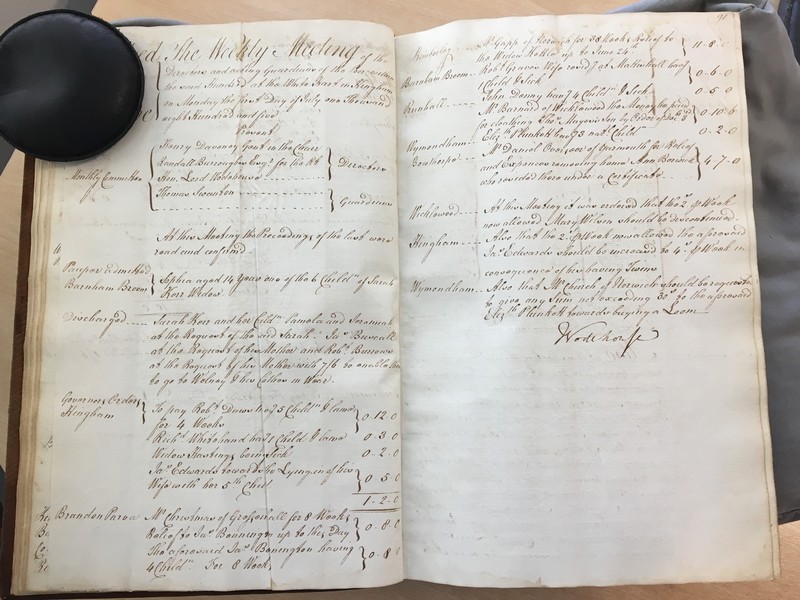 The Weekly Meeting of the
Directors and acting Guardians of the Poor
the said Hundred at the White Hart in Hingham
on Monday the first Day of July one Thousand
eight Hundred and five
Present
Henry Davoney Gent in the Chair
Monthly Committee
Randall Burroughs Esqr. for the Rt
Hon. Lord Wodehouse
Directors
Thomas Swenton
Guardians
At this Meeting the Proceedings of the last were
read and confirmd.
Pauper admitted
Barnham Broom
Sophia aged 14 Years one of the 6 Childn. of Sarah
Kerr Widow
Discharged
Sarah Kerr and her Childn. and Jeremiah
at the Request of the said Sarah. Jas.
at the Request of his Mother and Robt. Burrows
at the Request of his Mother with 7/6 to enable him
to go to & his Father in
Governors Orders
Hingham
To pay Robt. Daws havg 5 Childn. & lame
for 4 Weeks
0-12-0
Richd. Whitehand havg 1 Child & lame
0-3-0
Widow Hastings being Sick
0-2-0
Jas. Edwards towards the Lying in of his
Wife with her 5th Child
0-5-0
1-2-0
Brandon Parva
Mr. Christmas of for 8 Weeks
Relief to Jas. Bonnington up to this Day
0-8-0
The aforesaid Jas. Bonington having
4 Childn. For 8 Weeks
0-8-0
91
Kimberley
Mr. Gapp of Norwich for 38 Weeks Relief to
the Widow up to June 24th
11-8-0
Barnham Broom
Robt. Graves Wife residg at Mattishall havg
1 Child & Sick
0-6-0
Runhall
John Denny havg 4 Childn. & Sick
0-5-0
Mr. Barnard of Wicklewood the Money he paid
for cloathing Thos. Mayes's Son by Order of
0-10-6
Wymondham
Elizth. Plunkett havg 3 natl. Childn.
0-2-0
Mr. Daniel Overseer of Yarmouth for Relief
and Expences removing home Ann
who resided there under a Certificate
4-7-0
Wicklewood
At this Meeting it was ordered that the 2s. P Week
now allowed Mary Wilson should be discontinued.
Hingham
Also that the 2s. P Week now allowed the aforesaid
Jas. Edwards should be increased to 4s. P Week in
consequence of his having Twins
Wymondham
Also that Mr. Church of Norwich should be requested
to give any Sum not exceeding 30s. to the aforesaid
Elizth. Plunkett towards buying a Loom
Wodehouse